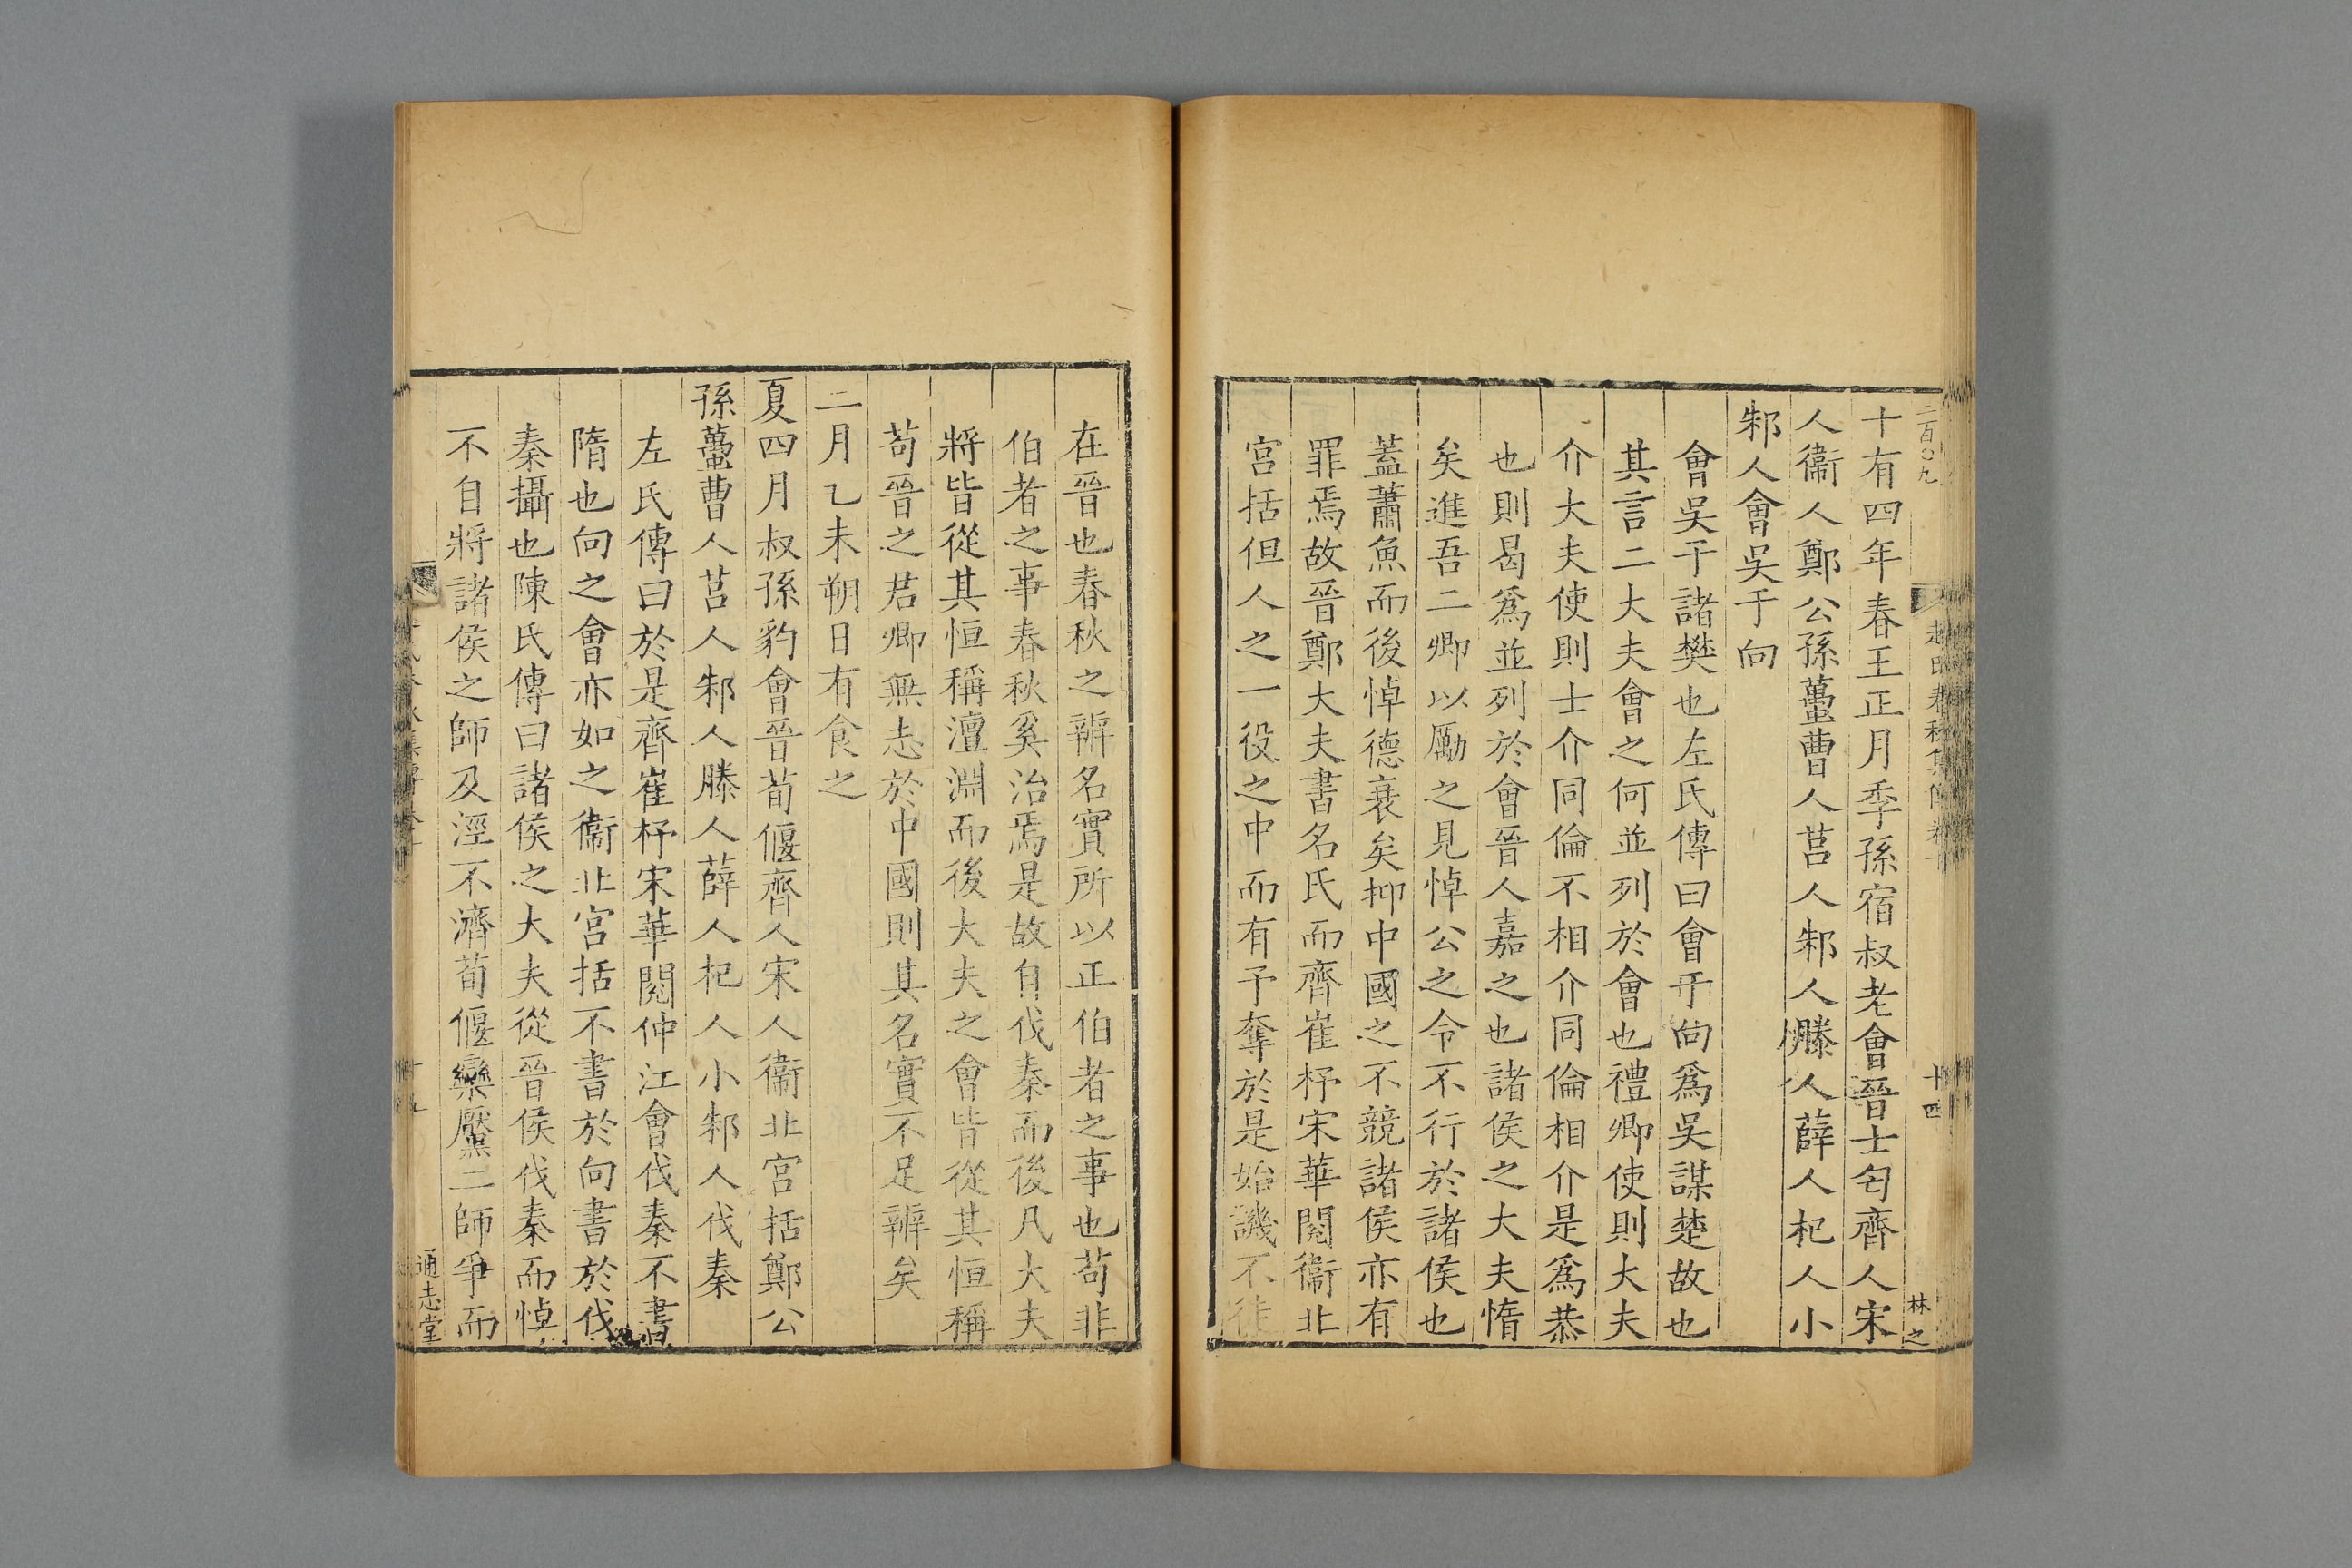 二百〇九
十四
林之
十有四年春王正月季孫宿叔老會晉士匄齊人宋
人衞人鄭公孫蠆曹人莒人邾人滕人薛人杞人小
邾人會吳于向
會吳于諸樊也左氏傳曰會于向爲吳謀楚故也
其言二大夫會之何並列於會也禮卿使則大夫
介大夫使則士介同倫不相介同倫相介是爲恭
也則曷爲並列於會晉人嘉之也諸侯之大夫惰
矣進吾二卿以勵之見悼公之令不行於諸侯也
蓋蕭魚而後悼德衰矣抑中國之不競諸侯亦有
罪焉故晉鄭大夫書名氏而齊崔杼宋華閱衞北
宮括但人之一役之中而有予奪於是始譏不徒
在晉也春秋之辨名實所以正伯者之事也苟非
伯者之事春秋奚治焉是故自伐秦而後凡大夫
將皆從其恒稱澶淵而後大夫之會皆從其恒稱
苟晉之君卿無志於中國則其名實不足辨矣
二月乙未朔日有食之
夏四月叔孫豹會晉荀偃齊人宋人衞北宮括鄭公
孫蠆曹人莒人邾人滕人薛人杞人小邾人伐秦
左氏傳曰於是齊崔杼宋華閱仲江會伐秦不書
隋也向之會亦如之衞北宮括不書於向書於伐
秦攝也陳氏傳曰諸侯之大夫從晉侯伐秦而悼
不自將諸侯之師及涇不濟荀偃欒黶二師爭而
通志堂